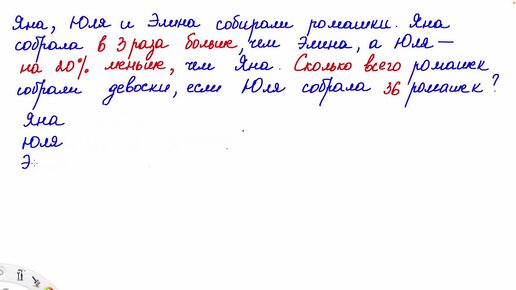 Яна, Юля и Элина собирали ромашки. Яна
собрала в 3 раза больше, чем Элина, а Юля —
на 20% меньше, чем Яна. Сколько всего ромашек
собрали девоски, если Юля собрала 36 ромашек?
Яна
Юля
Э